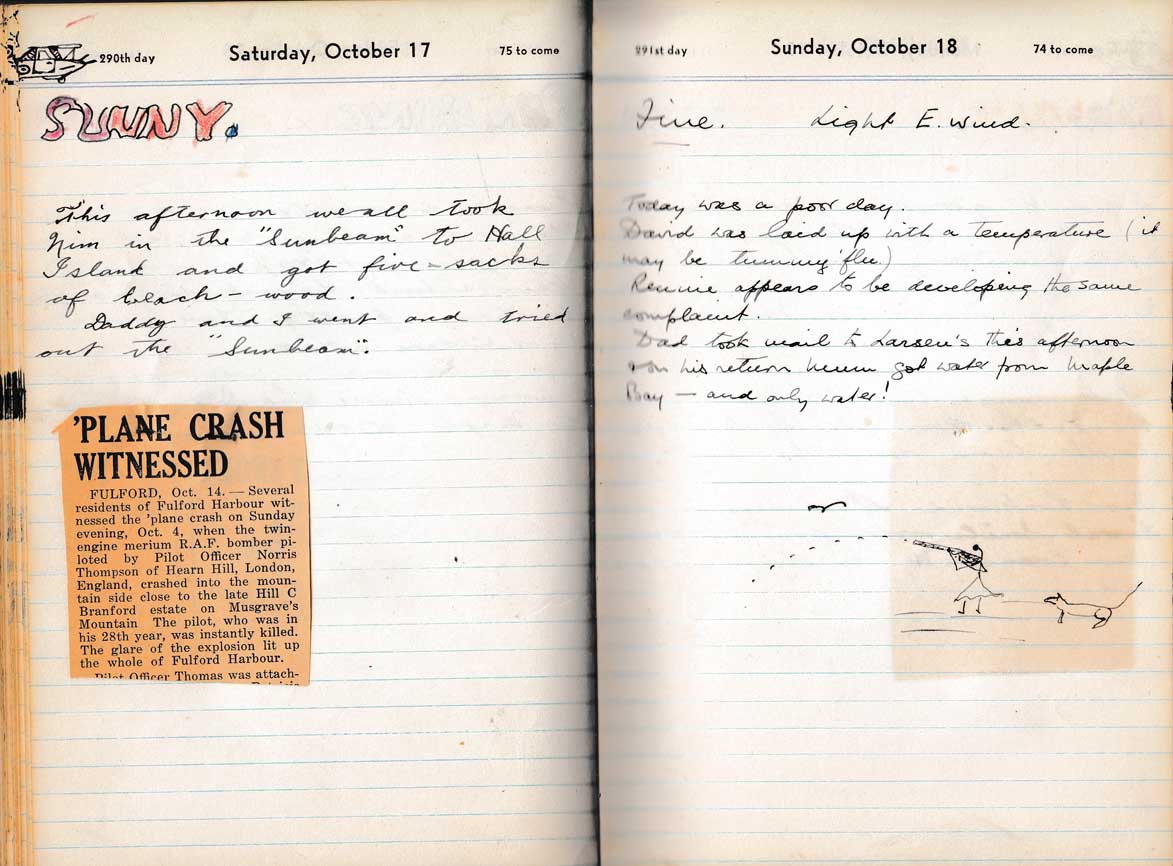 290th day Saturday, October 17 75 to come
SUNNY.
This afternoon we all took
Nim in the "Sunbeam" to Hall
Island and got five - sacks
of beach - wood.
Daddy and I went and tried
out the "Sunbeam".
'PLANE CRASH
WITNESSED
FULFORD, Oct. 14. — Several
residents of Fulford Harbour wit-
nessed the 'plane crash on Sunday
evening, Oct. 4, when the twin-
engine merium R.A.F. bomber pi-
loted by Pilot Officer Norris
Thompson of Hearn Hill, London,
England, crashed into the moun-
tain side close to the late Hill C
Branford estate on Musgrave's
Mountain The pilot, who was in
his 28th year, was instantly killed.
The glare of the explosion lit up
the whole of Fulford Harbour.
Pilot Officer Thomas was attach-
291st day Sunday, October 18 74 to come
Fine. Light E. wind.
Today was a poor day.
David was laid up with a temperature (it
may be tummy 'flu)
appears to be developing the same
complaint.
Dad took mail to Larsen's this afternoon
on his return got water from Maple
Bay — and only water!